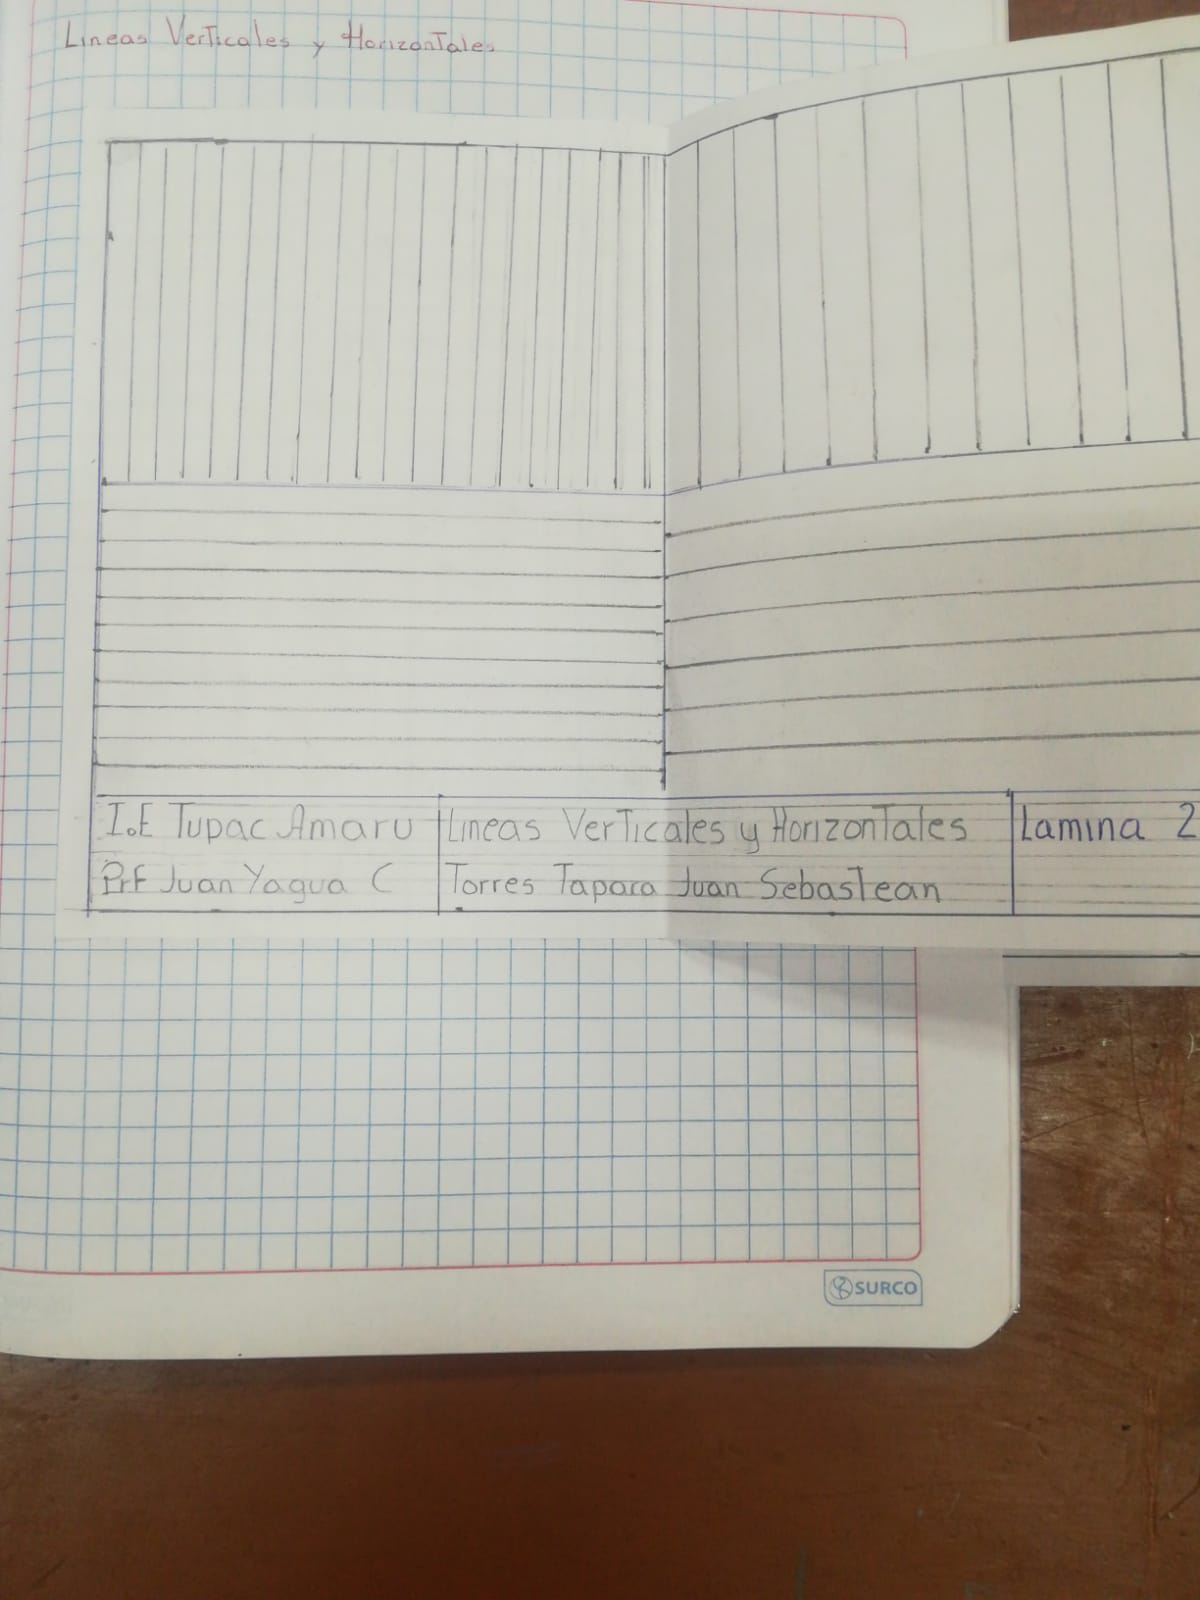 Lineas Verticales y Horizontales
I.E Tupac Amaru
Prf Juan Yagua C
Lineas Verticales y Horizontales
Torres Tapara Juan Sebastean
Lamina 2
SURCO